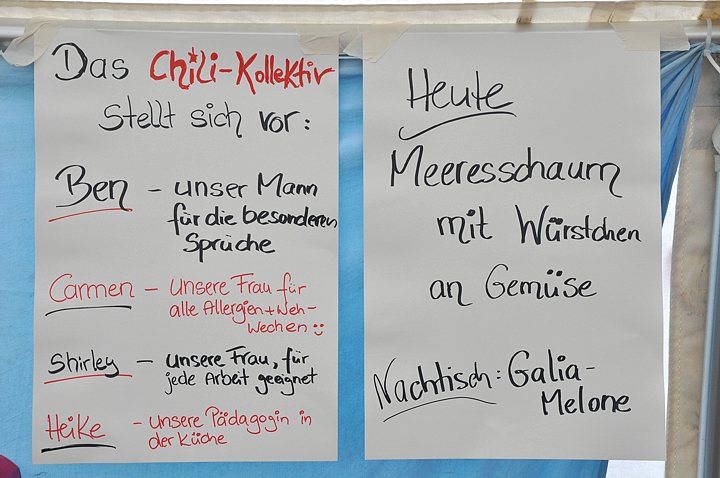 Das Chili-Kollektiv
stellt sich vor:
Ben - unser Mann
für die besonderen
Sprüche
Carmen - Unsere Frau für
alle Allergien+Weh-
Wechen
Shirley - unsere Frau, für
jede Arbeit geeignet
Heike - unsere Pädagogin in
der Küche
Heute
Meeresschaum
mit Würstchen
an Gemüse
Nachtisch: Galia-
Melone